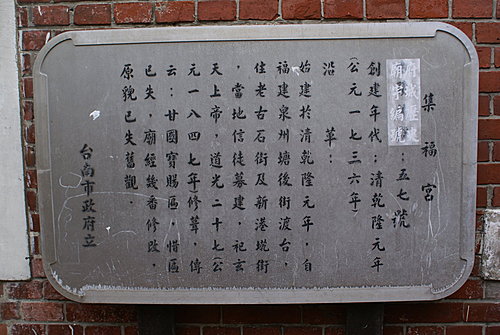 集福宮
府城歷
廟宇編號：五七號
創建年代：清乾隆元年
(公元一七三六年)
沿革：
始建於清乾隆元年，自
福建泉州塘後街渡台，
住老古石街及新港墘街
，當地信徒募建，祀玄
天上帝，道光二十七(公
元一八四七年)修葺，傳
云：廿國寶賜區，惜區
已失，廟經幾番修改，
原貌已失舊觀。
台南市政府立